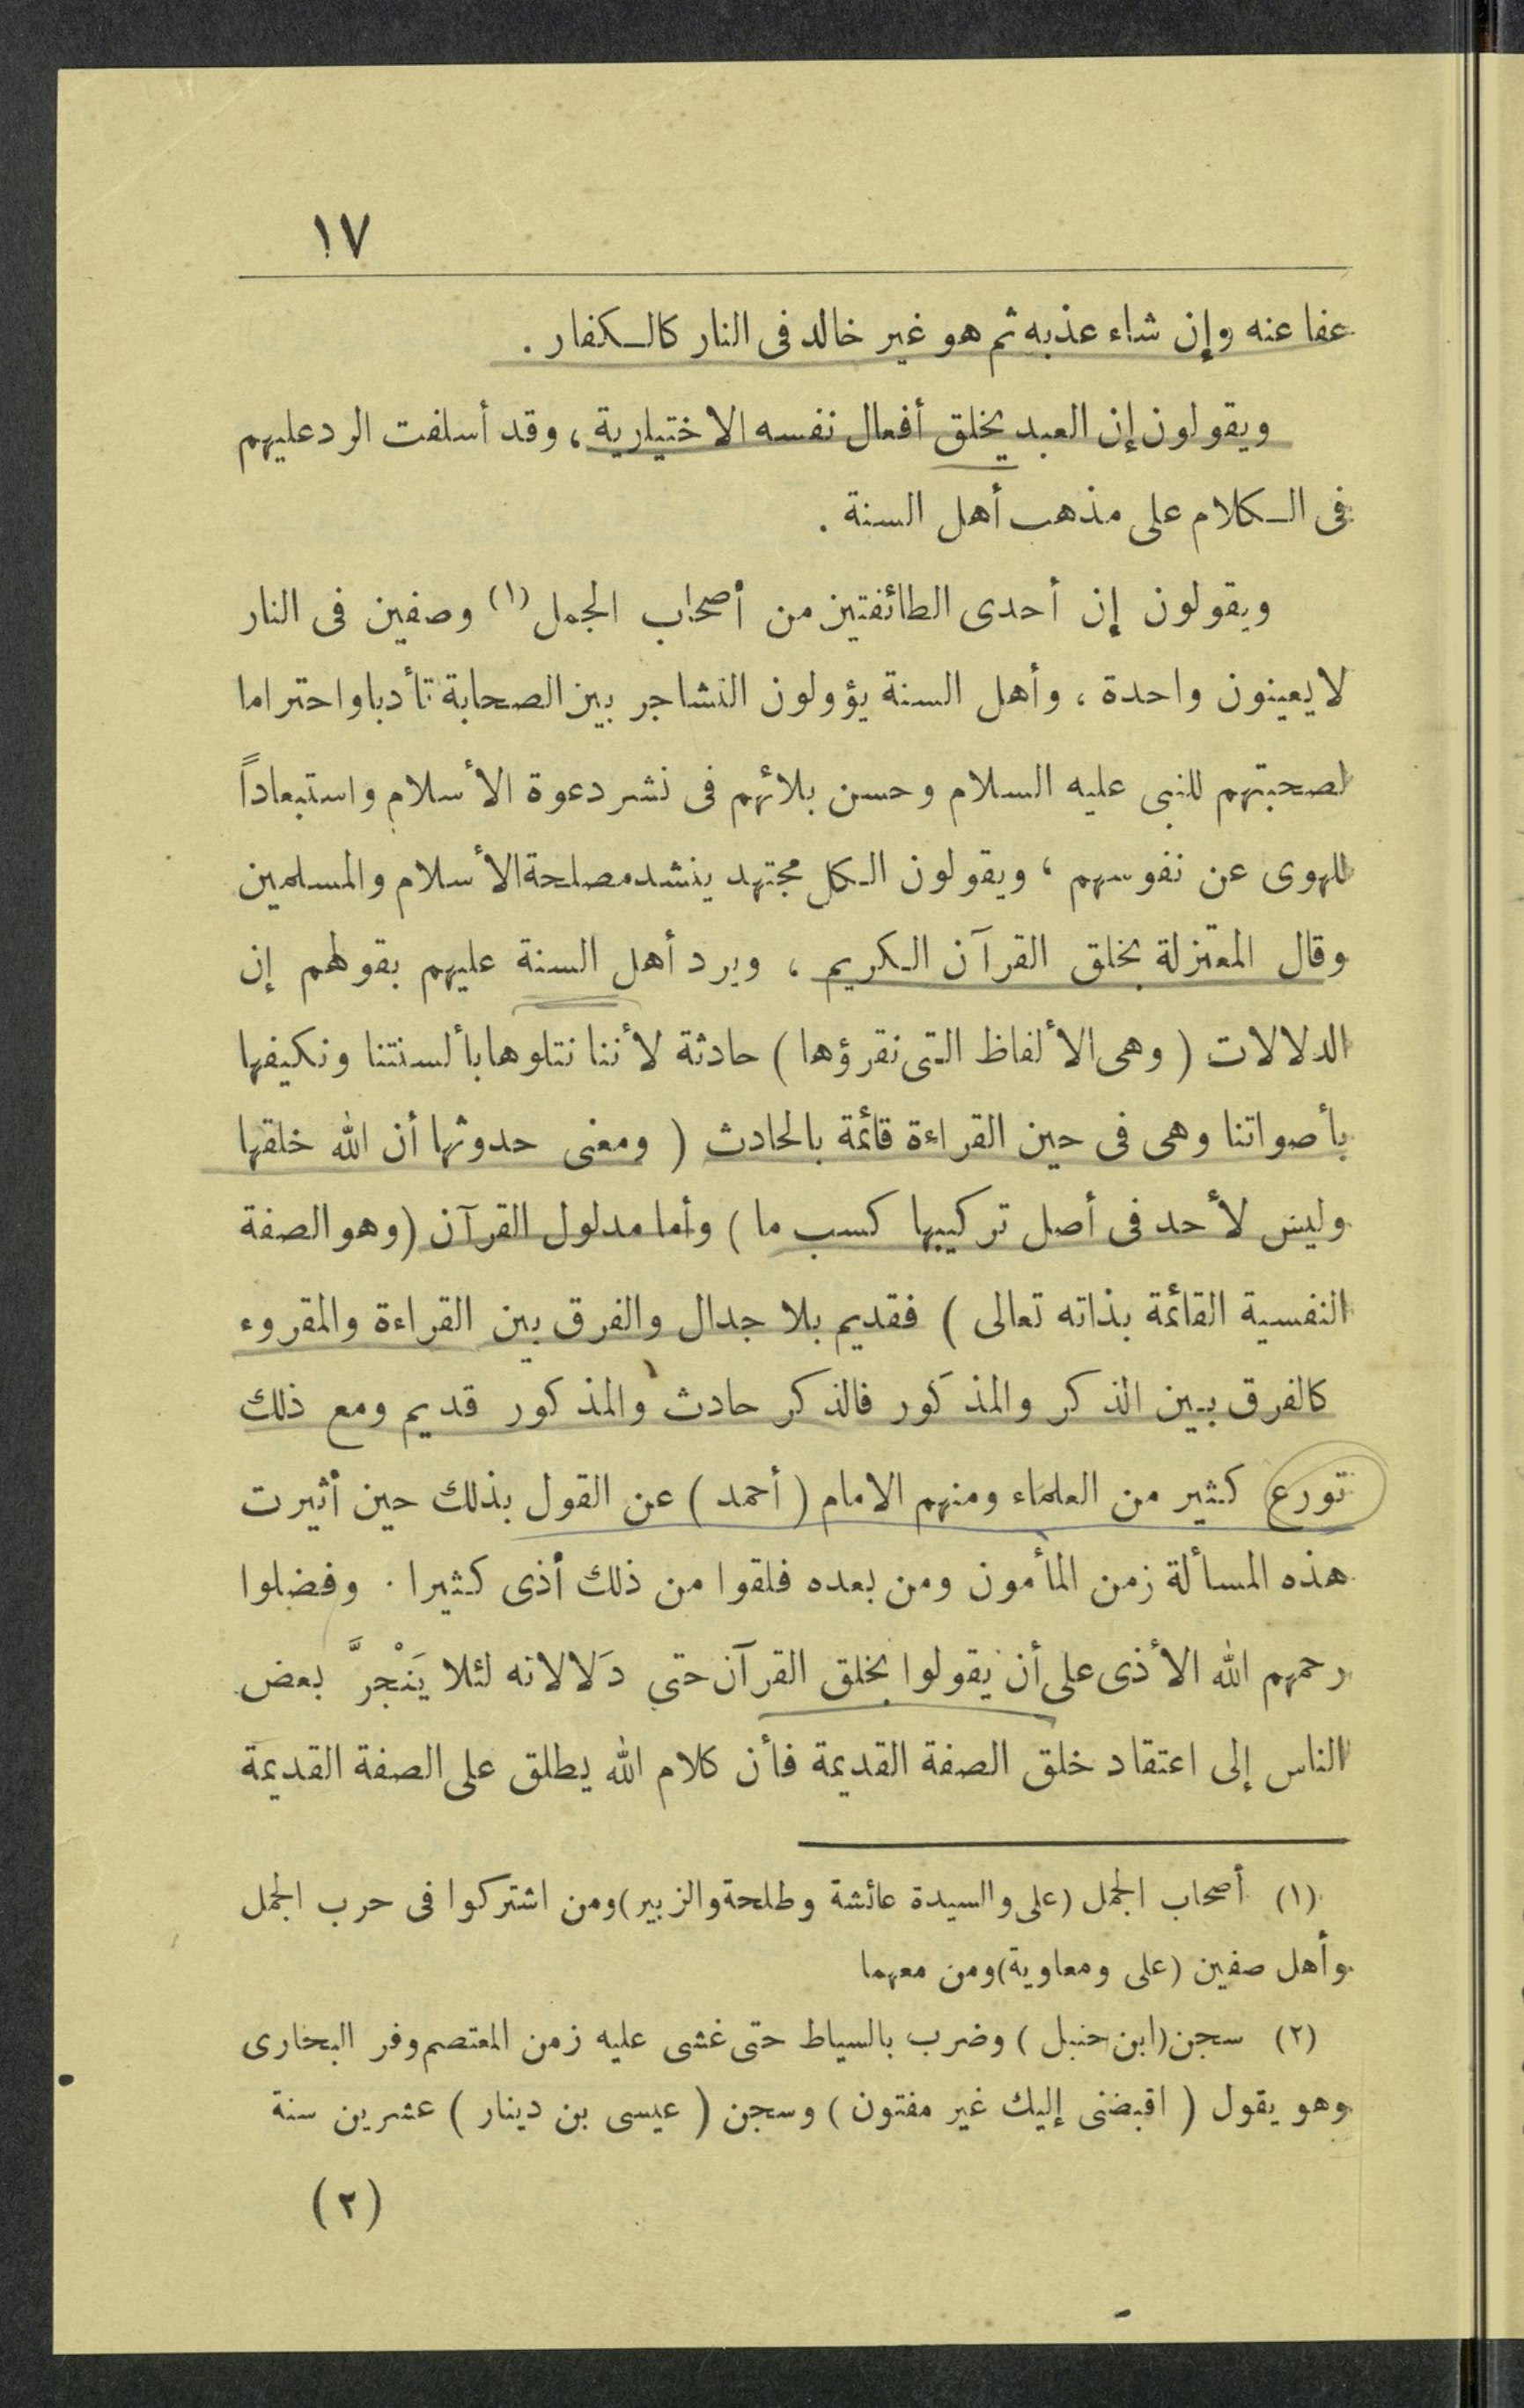 ١٧
عفا عنه وإن شاء عذبه ثم هو غير خالد فى النار كالكفار .
ويقولون إن العبد يخلق أفعال نفسه الاختيارية ، وقد أسلفت الرد عليهم
فى الكلام على مذهب أهل السنة .
ويقولون إن أحدى الطائفتين من أصحاب الجمل (١) وصفين فى النار
لا يعينون واحدة ، وأهل السنة يؤولون التشاجر بين الصحابة تأدبا واحتراما
لصحبتهم للنبى عليه السلام وحسن بلائهم فى نشر دعوة الأسلام واستبعاداً
للهوى عن نفوسهم ، ويقولون الكل مجتهد ينشد مصلحة الأسلام والمسلمين
وقال المعتزلة بخلق القرآن الكريم ، ويرد أهل السنة عليهم بقولهم إن
الدلالات ( وهى الألفاظ التى نقرؤها ) حادثة لأننا نتلوها بألسنتنا ونكيفها
بأصواتنا وهى فى حين القراءة قائمة بالحادث ( ومعنى حدوثها أن الله خلقها
وليس لأحد فى أصل تركيبها كسب ما ) وأما مدلول القرآن ( وهو الصفة
النفسية القائمة بذاته تعالى ) فقديم بلا جدال والفرق بين القراءة والمقروء
كالفرق بين الذكر والمذكور فالذكر حادث والمذكور قديم ومع ذلك
تورع كثير من العلماء ومنهم الامام ( أحمد ) عن القول بذلك حين أثيرت
هذه المسألة زمن المأمون ومن بعده فلقوا من ذلك أذى كثيرا . وفضلوا
رحمهم الله الأذى على أن يقولوا بخلق القرآن حتى دَلالاته لئلا يَنْجرَّ بعض
الناس إلى اعتقاد خلق الصفة القديمة فأن كلام الله يطلق على الصفة القديمة
(١) أصحاب الجمل ( على والسيدة عائشة وطلحة والزبير ) ومن اشتركوا فى حرب الجمل
وأهل صفين ( على ومعاوية ) ومن معهما
(٢) سجن ( ابن حنبل ) وضرب بالسياط حتى غشى عليه زمن المعتصم وفر البخارى
وهو يقول ( اقبضنى إليك غير مفتون ) وسجن ( عيسى بن دينار ) عشرين سنة
(٢)